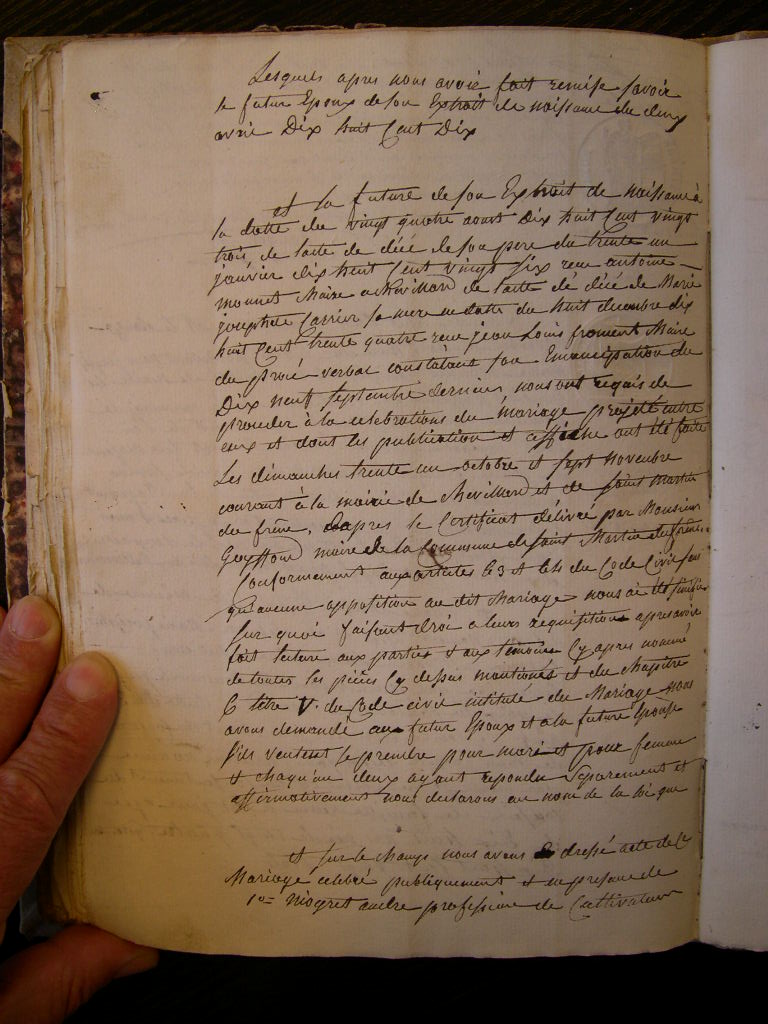 Lesquels apres nous avoir fait remise savoir
le futur Epoux de son Extrait de naissance du deux
avril Dix huit Cent Dix
et la future de son Extrait de naissance à
la datte du vingt quatre aout Dix huit Cent vingt
trois, de l'acte de décé de son pere du trente un
janvier dix huit Cent vingt six recu antoine
monnet Maire a Chevillard de l'acte de décé de Marie
josephte Carrier sa mere en datte du huit decembre dix
huit Cent trente quatre recu jean Louis froment Maire
du procé verbal constatant son Emancipation du
Dix neuf Septembre dernier nous ont requis de
proceder à la celebrations du mariage projetté entre
eux et dont les publication et affiche ont été faite
Les dimanches trente un octobre et sept novembre
courant à la mairie de Chevillard et de saint Martin
du frêne, dapres le Certificat délivré par Monsieur
maire de la Commune de saint Martin du frêne
Conformement aux articles 63 et 64 du Code Civil
qu'aucune apposition au dit Mariage nous ai été signifié
sur quoi faisant droi a leurs requisition apres avoir
fait lecture aux parties et aux temoins Cy apres nommé
de toutes les pièces Cy dessus mentionés et du chapitre
6 titre V. du Code civil intitulé du Mariage nous
avons demandé au futur Epoux et a la future Epouse
s'ils veulent se prendre pour mari et pour femme
et chaqu'un deux ayant repondu Separement et
affirmativement nous declarons au nom de la loi que
et sur le champs nous avons dressé acte de Ce
Mariage célébré publiquement et en presence de
1er Miogret andre profession de Cultivateur